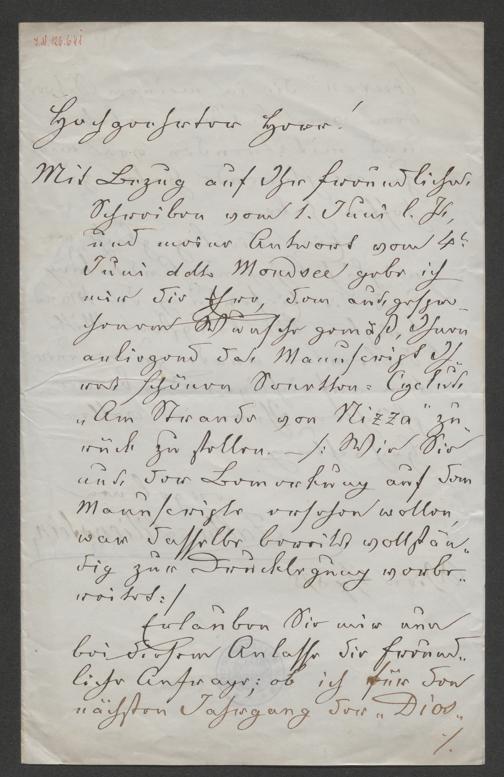 J.N. 126.641
Hochgeehrter Herr!
Mit Bezug auf Ihr freundliches
Schreiben vom 1. Juni l. J.,
und meine Antwort vom 4t
Juni ddto Mondsee gebe ich
mir die Ehre, dem ausgespro-
chenem Wunsche gemäß, Ihnen
anliegend das Manuscript Ih-
res schönen Sonetten-Cyclus
„Am Strande von Nizza" zu-
rück zu stellen. –/: Wie Sie
aus der Bemerkung auf dem
Manuscripte ersehen wollen,
war dasselbe bereits vollstän-
dig zur Drucklegung vorbe-
reitet:/
Erlauben Sie mir nun
bei diesem Anlasse die freund-
liche Anfrage; ob ich für den
nächsten Jahrgang der „Dios-
./.